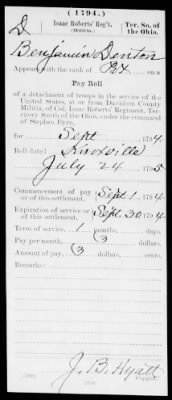 (1794.)
D
Isaac Roberts' Reg't.
(MILITIA.)
Ter. So. of the Ohio.
Benjamin Denton
Appears with the rank of Pvt on a
Pay Roll
of a detachment of troops in the service of the
United States, at or from Davidson County
Militia, of Col. Isaac Roberts' Regiment, Territory
South of the Ohio, under the command
of Stephen Byrn,
for Sept , 1794.
Roll dated Knoxville
July 24 , 1795
Commencement of pay or of this settlement. Sept. 1 , 1794
Expiration of service or of this settlement. Sept. 30 , 1794
Term of service, 1 months, days.
Pay per month, 3 dollars.
Amount of pay, 3 dollars, cents.
Remarks:
J. B. Hyatt
Copyist.